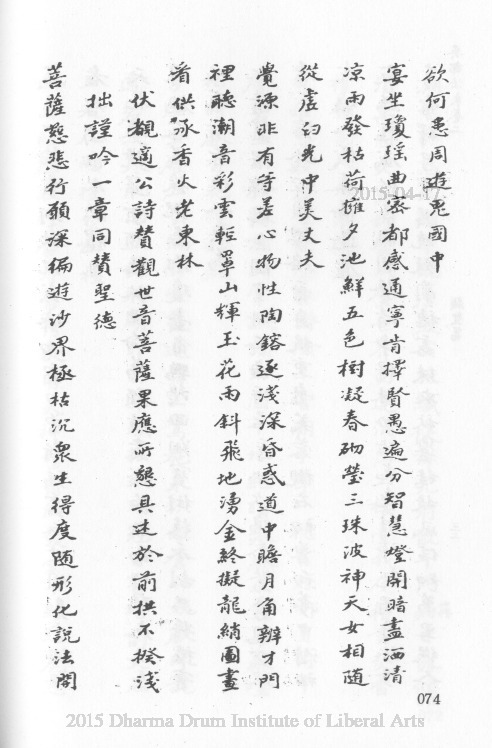 欲何患周遊兜國中
宴坐瓊瑶曲密都感通寧肯擇賢愚遍分智慧燈開暗盡洒清
凉雨發枯荷擁夕池鮮五色樹凝春砌瑩三珠波神天女相随
從虚白光中美丈夫
覺源非有等差心物性陶鎔逐淺深昏惑道中瞻月角辨才門
裡聴潮音彩雲輕罩山輝玉花雨斜飛地湧金終擬龍綃圖畫
看供承香火老東林
伏覩適公詩賛觀世音菩薩果應所懇具述於前拱不揆淺
拙謹吟一章同賛聖德
菩薩慈悲行願深徧遊沙界極枯沉衆生得度随形化說法開
074
2015-04-17
2015 Dharma Drum Institute of Liberal Arts